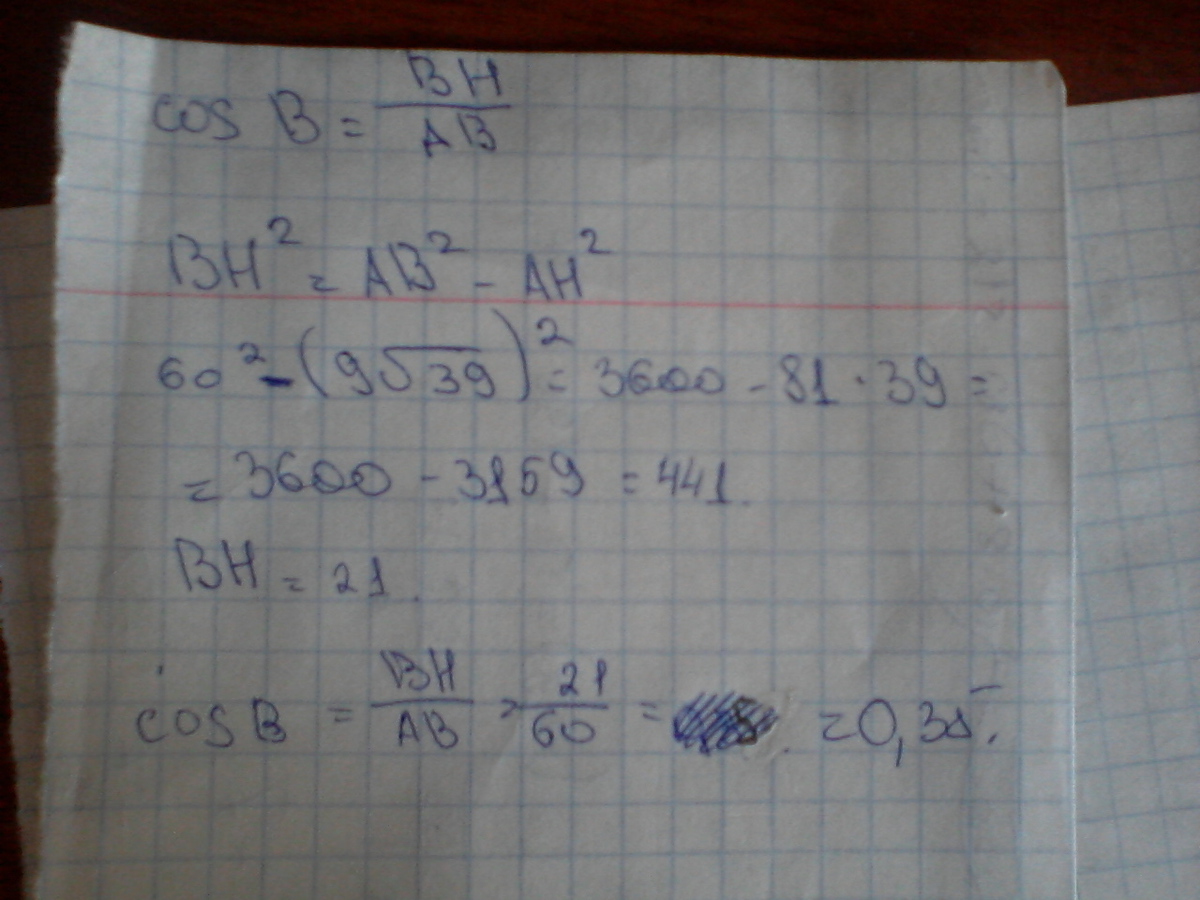 cos B = BH/AB
BH² = AB² - AH²
60² - (9√39)² = 3600 - 81 · 39 =
= 3600 - 3159 = 441.
BH = 21.
cos B = BH/AB = 21/60 = = 0,35.